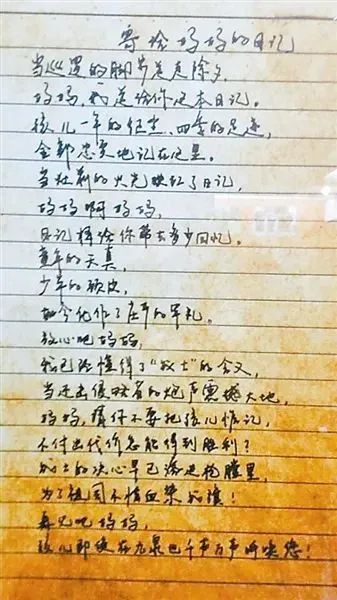 寄给妈妈的日记
当巡逻的脚步送走除夕,
妈妈,我送给你这本日记。
孩儿一年的经历、四季的足迹,
全都忠实地记在这里。
当灶前的火光映红了日记,
妈妈啊妈妈,
日记将给你带去多少回忆。
童年的天真,
少年的顽皮,
如今化作了庄严的军礼。
放心吧妈妈,
我已经懂得了“战士”的含义,
当还击侵略者的炮声震撼大地,
妈妈,请你不要把孩儿惦记,
不付出代价怎能得到胜利?
战士的决心早已落进枪膛里,
为了祖国不惜血染战旗!
再见吧妈妈,
孩儿即使在九泉也千声万声呼唤您!